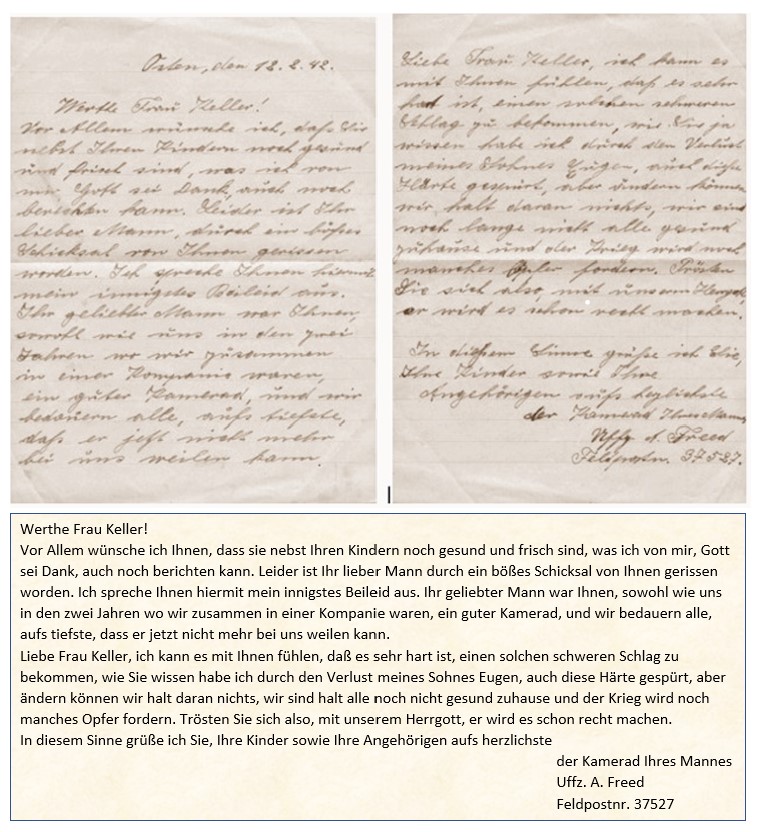 Osten, den 12.2.42.
Werthe Frau Keller!
Vor Allem wünsche ich, daß Sie
nebst Ihren Kindern noch gesund
und frisch sind, was ich von
mir Gott sei Dank, auch noch
berichten kann. Leider ist Ihr
lieber Mann, durch ein bößes
Schicksal von Ihnen gerissen
worden. Ich spreche Ihnen hiermit
mein innigstes Beileid aus.
Ihr geliebter Mann war Ihnen,
sowohl wie uns in den zwei
Jahren wo wir zusammen
in einer Kompanie waren,
ein guter Kamerad, und wir
bedauern alle, aufs tiefste,
daß er jetzt nicht mehr
bei uns weilen kann.
Liebe Frau Keller, ich kann es
mit Ihnen fühlen, daß es sehr
hart ist, einen solchen schweren
Schlag zu bekommen, wie Sie ja
wissen habe ich durch den Verlust
meines Sohnes Eugen, auch diese
Härte gespürt, aber ändern können
wir halt daran nichts, wir sind
noch lange nicht alle gesund
zuhause und der Krieg wird noch
manches Opfer fordern. Trösten
Sie sich also, mit unserem Herrgott,
er wird es schon recht machen.
In diesem Sinne grüße ich Sie,
Ihre Kinder sowie Ihre
Angehörigen aufs herzlichste
der Kamerad Ihres Mannes
Uffz. A. Freed
Feldpostn. 37527.
Werthe Frau Keller!
Vor Allem wünsche ich Ihnen, dass sie nebst Ihren Kindern noch gesund und frisch sind, was ich von mir, Gott
sei Dank, auch noch berichten kann. Leider ist Ihr lieber Mann durch ein bößes Schicksal von Ihnen gerissen
worden. Ich spreche Ihnen hiermit mein innigstes Beileid aus. Ihr geliebter Mann war Ihnen, sowohl wie uns
in den zwei Jahren wo wir zusammen in einer Kompanie waren, ein guter Kamerad, und wir bedauern alle,
aufs tiefste, dass er jetzt nicht mehr bei uns weilen kann.
Liebe Frau Keller, ich kann es mit Ihnen fühlen, daß es sehr hart ist, einen solchen schweren Schlag zu
bekommen, wie Sie wissen habe ich durch den Verlust meines Sohnes Eugen, auch diese Härte gespürt, aber
ändern können wir halt daran nichts, wir sind halt alle noch nicht gesund zuhause und der Krieg wird noch
manches Opfer fordern. Trösten Sie sich also, mit unserem Herrgott, er wird es schon recht machen.
In diesem Sinne grüße ich Sie, Ihre Kinder sowie Ihre Angehörigen aufs herzlichste
der Kamerad Ihres Mannes
Uffz. A. Freed
Feldpostnr. 37527